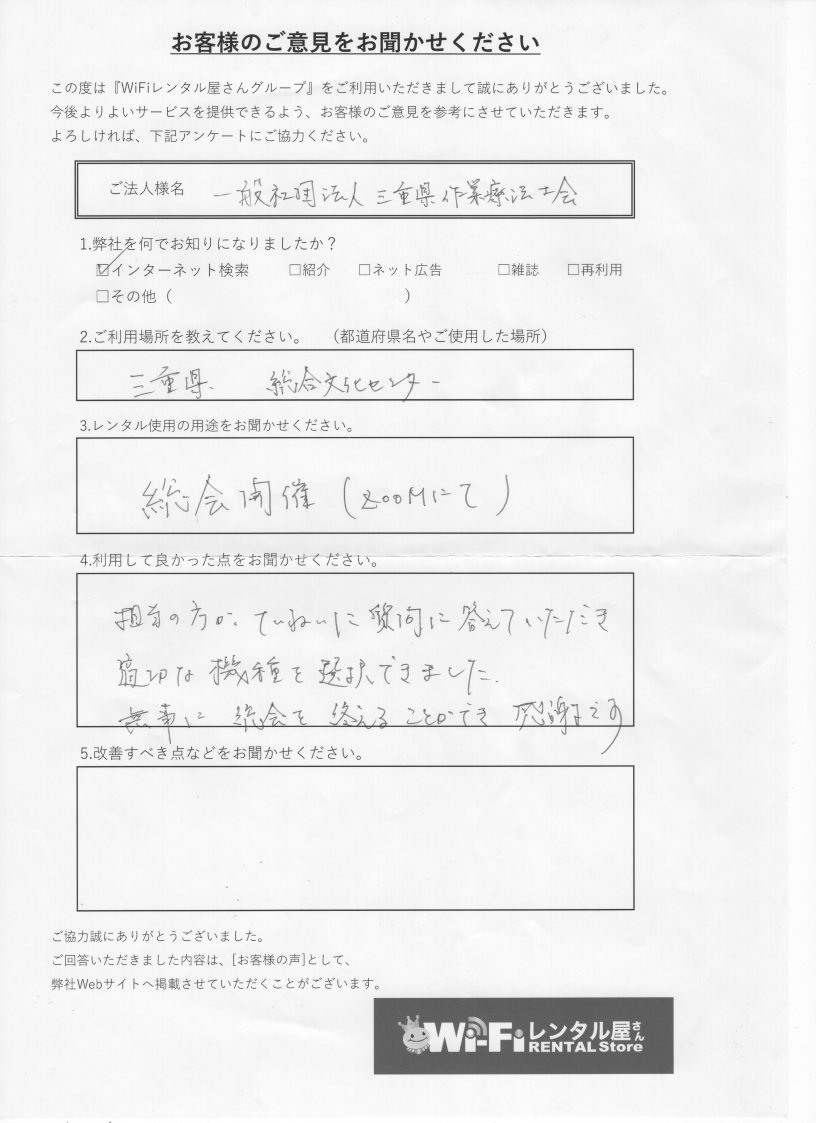 お客様のご意見をお聞かせください
この度は『WiFiレンタル屋さんグループ』をご利用いただきまして誠にありがとうございました。
今後よりよいサービスを提供できるよう、お客様のご意見を参考にさせていただきます。
よろしければ、下記アンケートにご協力ください。
ご法人様名 一般社団法人 三重県作業療法士会
1.弊社を何でお知りになりましたか？
☑インターネット検索 □紹介 □ネット広告 □雑誌 □再利用
□その他（ ）
2.ご利用場所を教えてください。 （都道府県名やご使用した場所）
三重県. 総合文化センター
3.レンタル使用の用途をお聞かせください。
総会開催（ZOOMにて）
4.利用して良かった点をお聞かせください。
担当の方が、ていねいに質問に答えていただき
適切な機種を選択できました.
無事に総会を終えることができ感謝ます
5.改善すべき点などをお聞かせください。
ご協力誠にありがとうございました。
ご回答いただきました内容は、[お客様の声]として、
弊社Webサイトへ掲載させていただくことがございます。
Wi-Fiレンタル屋さん
RENTAL Store